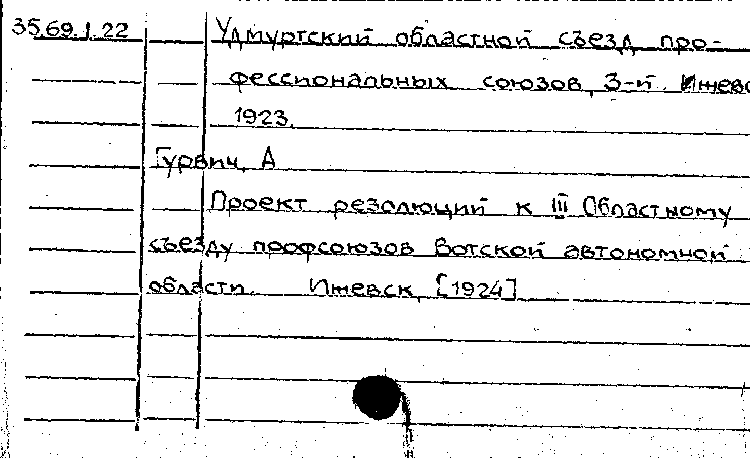 35.69.1.22 Удмуртский областной съезд про-
фессиональных союзов, 3-й. Ижевс
1923.
Гурвич, А
Проект резолюций к III Областному
съезду профсоюзов Вотской автономной
области. Ижевск, [1924]